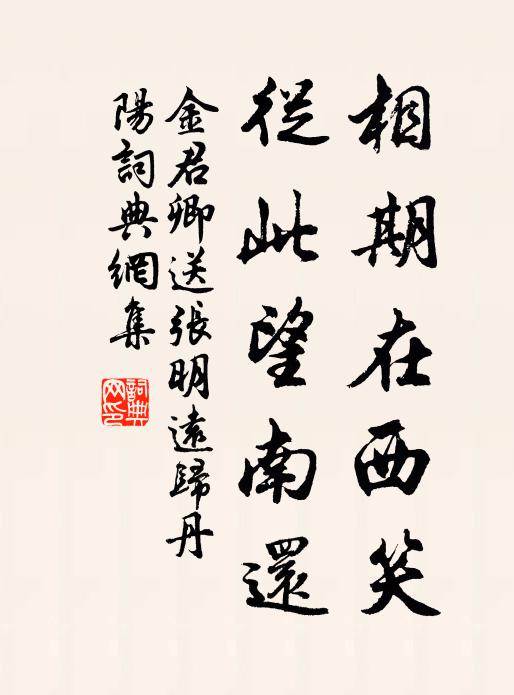 相期在西笑
從此望南還
金君卿送張明遠歸丹
陽詞典網集
詞典网印